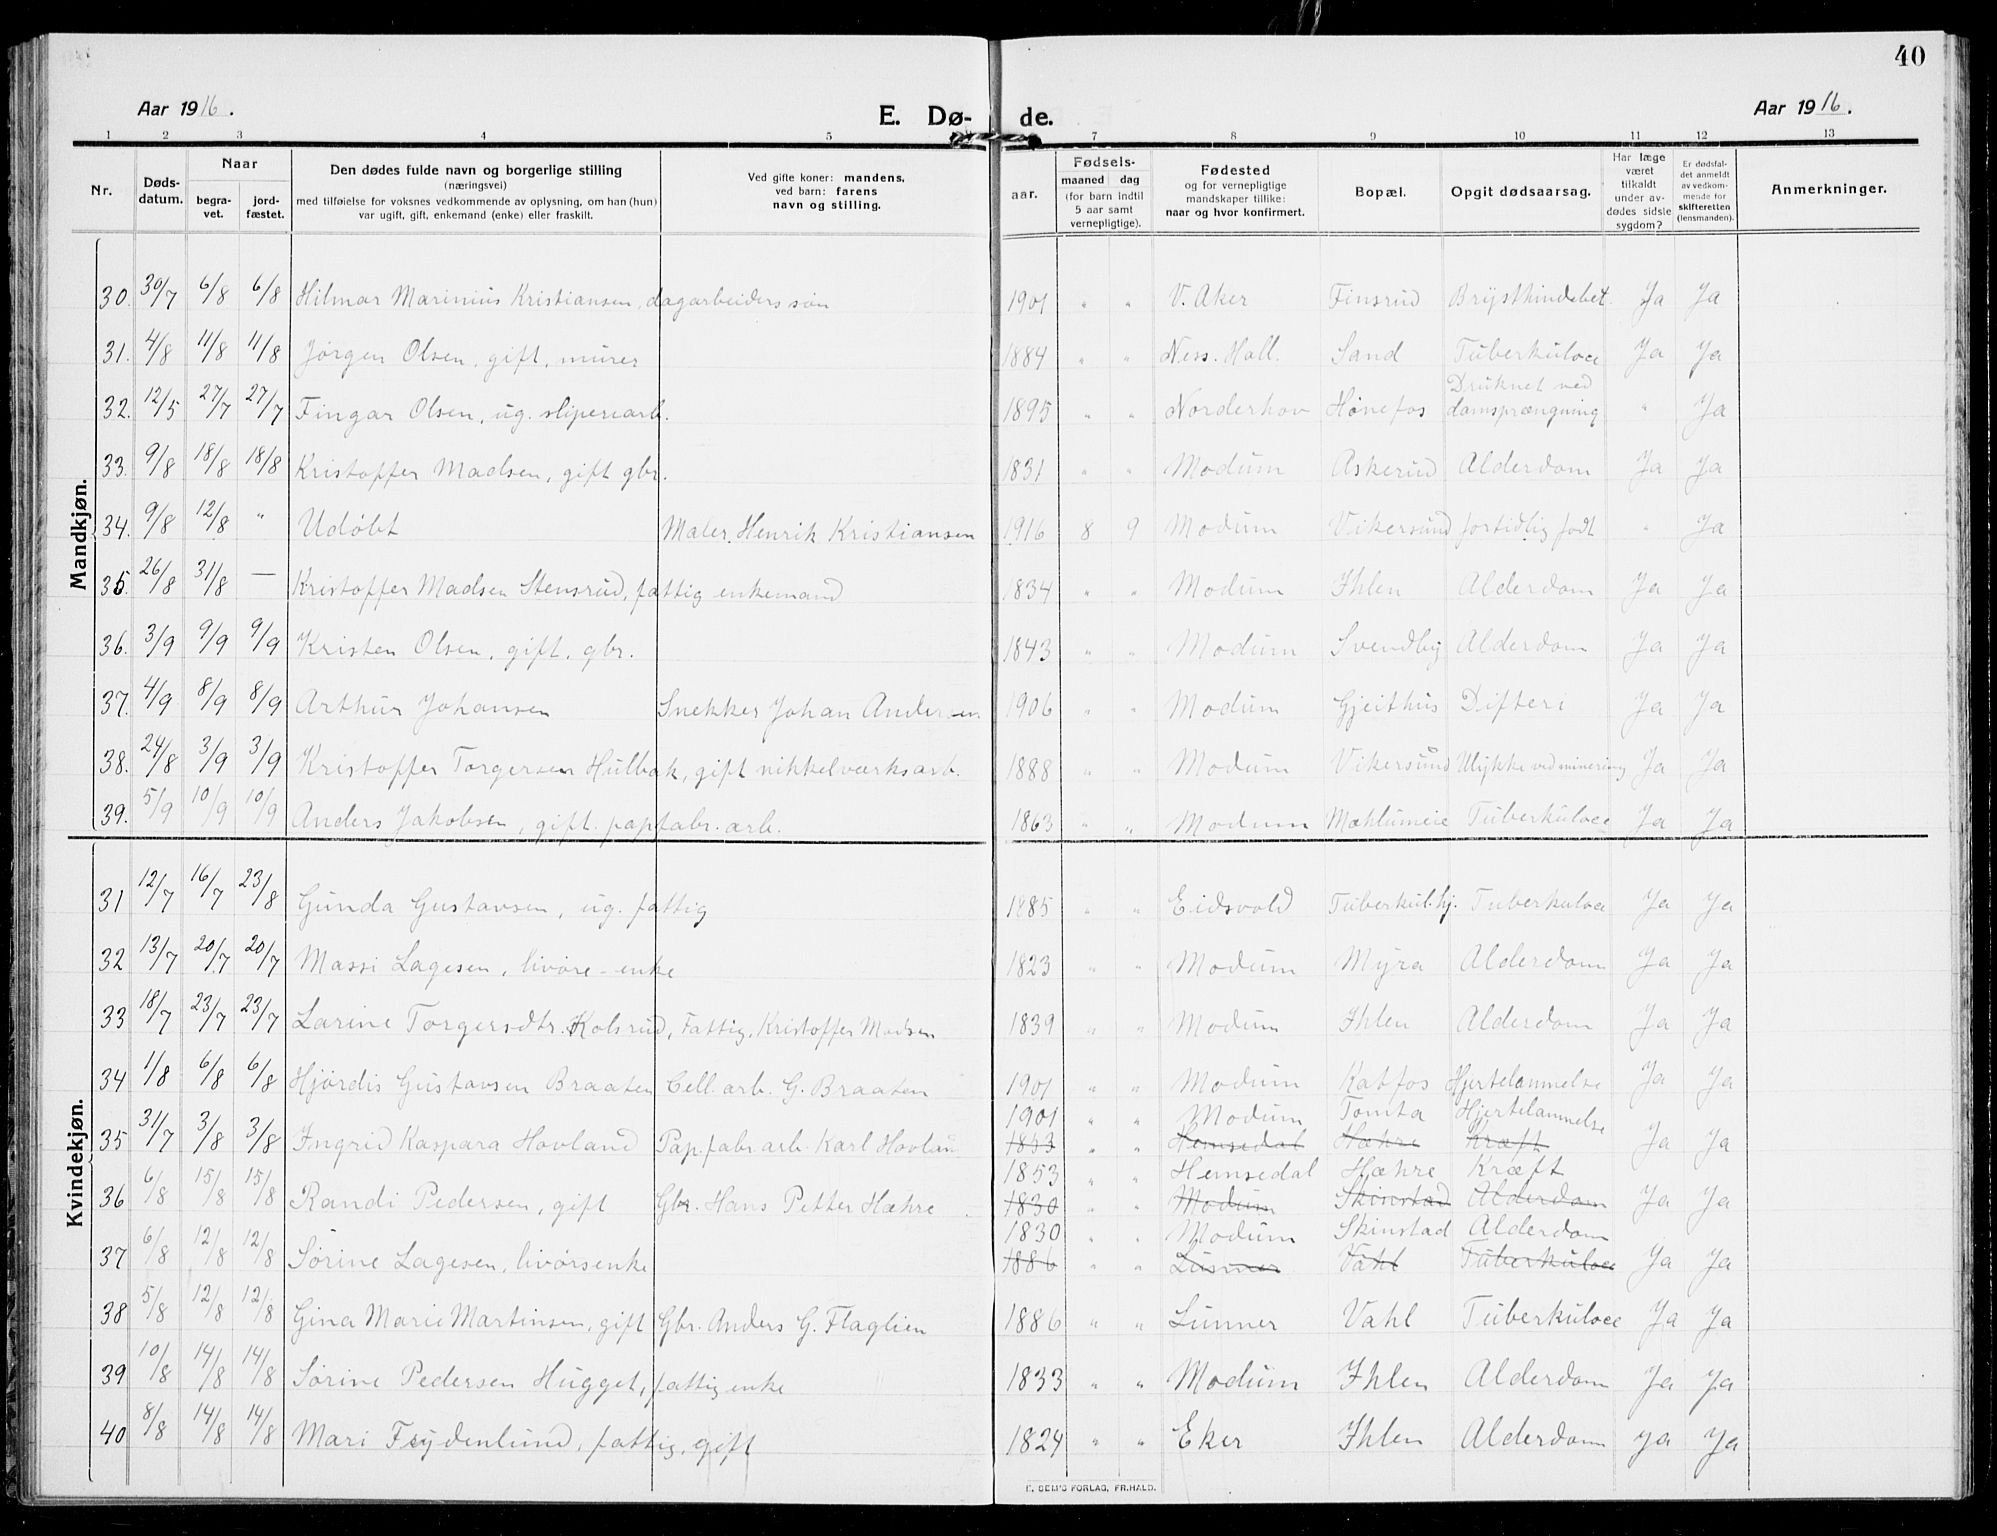 40
Aar 1916. E. Dø- de. Aar 1916.
1 2 3 4 5 7 8 9 10 11 12 13
Nr. Døds-datum. Naar begra-vet. jord-fæstet. Den dødes fulde navn og borgerlige stilling (næringsvei) med tilføielse for voksnes vedkommende av oplysning, om han (hun) var ugift, gift, enkemand (enke) eller fraskilt. Ved gifte koner: mandens, ved barn: farens navn og stilling. aar. Fødsels- maaned dag (for barn indtil 5 aar samt vernepligtige). Fødested og for vernepligtige mandskaper tillike: naar og hvor konfirmert. Bopæl. Opgit dødsaarsag. Har læge været tilkaldt under av-dødes sidste sygdom? Er dødsfal-det anmeldt av vedkom-mende for skifteretten (lensmanden). Anmerkninger.
Mandkjøn.
30. 30/7 6/8 6/8 Hilmar Marinius Kristiansen, dagarbeiders søn 1901 " " V. Aker Finsrud Brysthindebet. Ja Ja
31. 4/8 11/8 11/8 Jørgen Olsen, gift, murer 1884 " " Ness. Hall. Sand Tuberkuloce Ja Ja
32. 12/5 27/7 27/7 Fingar Olsen, ug. sliperiarb. 1895 " " Norderhov Hønefos Druknet ved damsprængning " Ja
33. 9/8 18/8 18/8 Kristoffer Madsen, gift gbr. 1831 " " Modum Askerud Alderdom Ja Ja
34. 9/8 12/8 " Udøbt Maler Henrik Kristiansen 1916 8 9 Modum Vikersund fortidlig født " Ja
35. 26/8 31/8 — Kristoffer Madsen Stensrud, fattig enkemand 1834 " " Modum Ihlen Alderdom Ja Ja
36. 3/9 9/9 9/9 Kristen Olsen, gift, gbr. 1843 " " Modum Svendby Alderdom Ja Ja
37. 4/9 8/9 8/9 Arthur Johansen Snekker Johan Andersen 1906 " " Modum Gjeithus Difteri Ja Ja
38. 24/8 3/9 3/9 Kristoffer Torgersen Hulbak, gift nikkelværksarb. 1888 " " Modum Vikersund Ulykke ved minering Ja Ja
39. 5/9 10/9 10/9 Anders Jakobsen, gift. papfabr. arb. 1863 " " Modum Mæhlumeie Tuberkuloce Ja Ja
Kvindekjøn.
31 12/7 16/7 23/8 Gunda Gustavsen, ug. fattig 1885 " " Eidsvold Tuberkul.hj. Tuberkuloce Ja Ja
32 13/7 20/7 20/7 Massi Lagesen, livøre-enke 1823 " " Modum Myra Alderdom Ja Ja
33 18/7 23/7 23/7 Larine Torgersdtr. Kolsrud, Fattig, Kristoffer Madsen 1839 " " Modum Ihlen Alderdom Ja Ja
34 1/8 6/8 6/8 Hjørdis Gustavsen Braaten Cell. arb. G. Braaten 1901 " " Modum Katfos Hjertelammelse Ja Ja
1901 Modum Tomta Hjertelammelse
35 31/7 3/8 3/8 Ingrid Kaspara Hovland Pap.fabr.arb. Karl Hovland 1853 " " Hemsedal Hæhre Kræft Ja Ja
1853 Hemsedal Hæhre Kræft
36 6/8 15/8 15/8 Randi Pedersen, gift Gbr. Hans Petter Hæhre 1830 " " Modum Skinstad Alderdom Ja Ja
1830 Modum Skinstad Alderdom
37 6/8 12/8 12/8 Sørine Lagesen, livørsenke 1886 " " Lunner Vahl Tuberkuloce Ja Ja
38 5/8 12/8 12/8 Gina Marie Martinsen, gift Gbr. Anders G. Flaglien 1886 " " Lunner Vahl Tuberkuloce Ja Ja
39 10/8 14/8 14/8 Sørine Pedersen Hugget, fattig enke 1833 " " Modum Ihlen Alderdom Ja Ja
40 8/8 14/8 14/8 Mari Frydenlund, fattig, gift 1824 " " Eker Ihlen Alderdom Ja Ja
E. SEM'S FORLAG, FR.HALD.